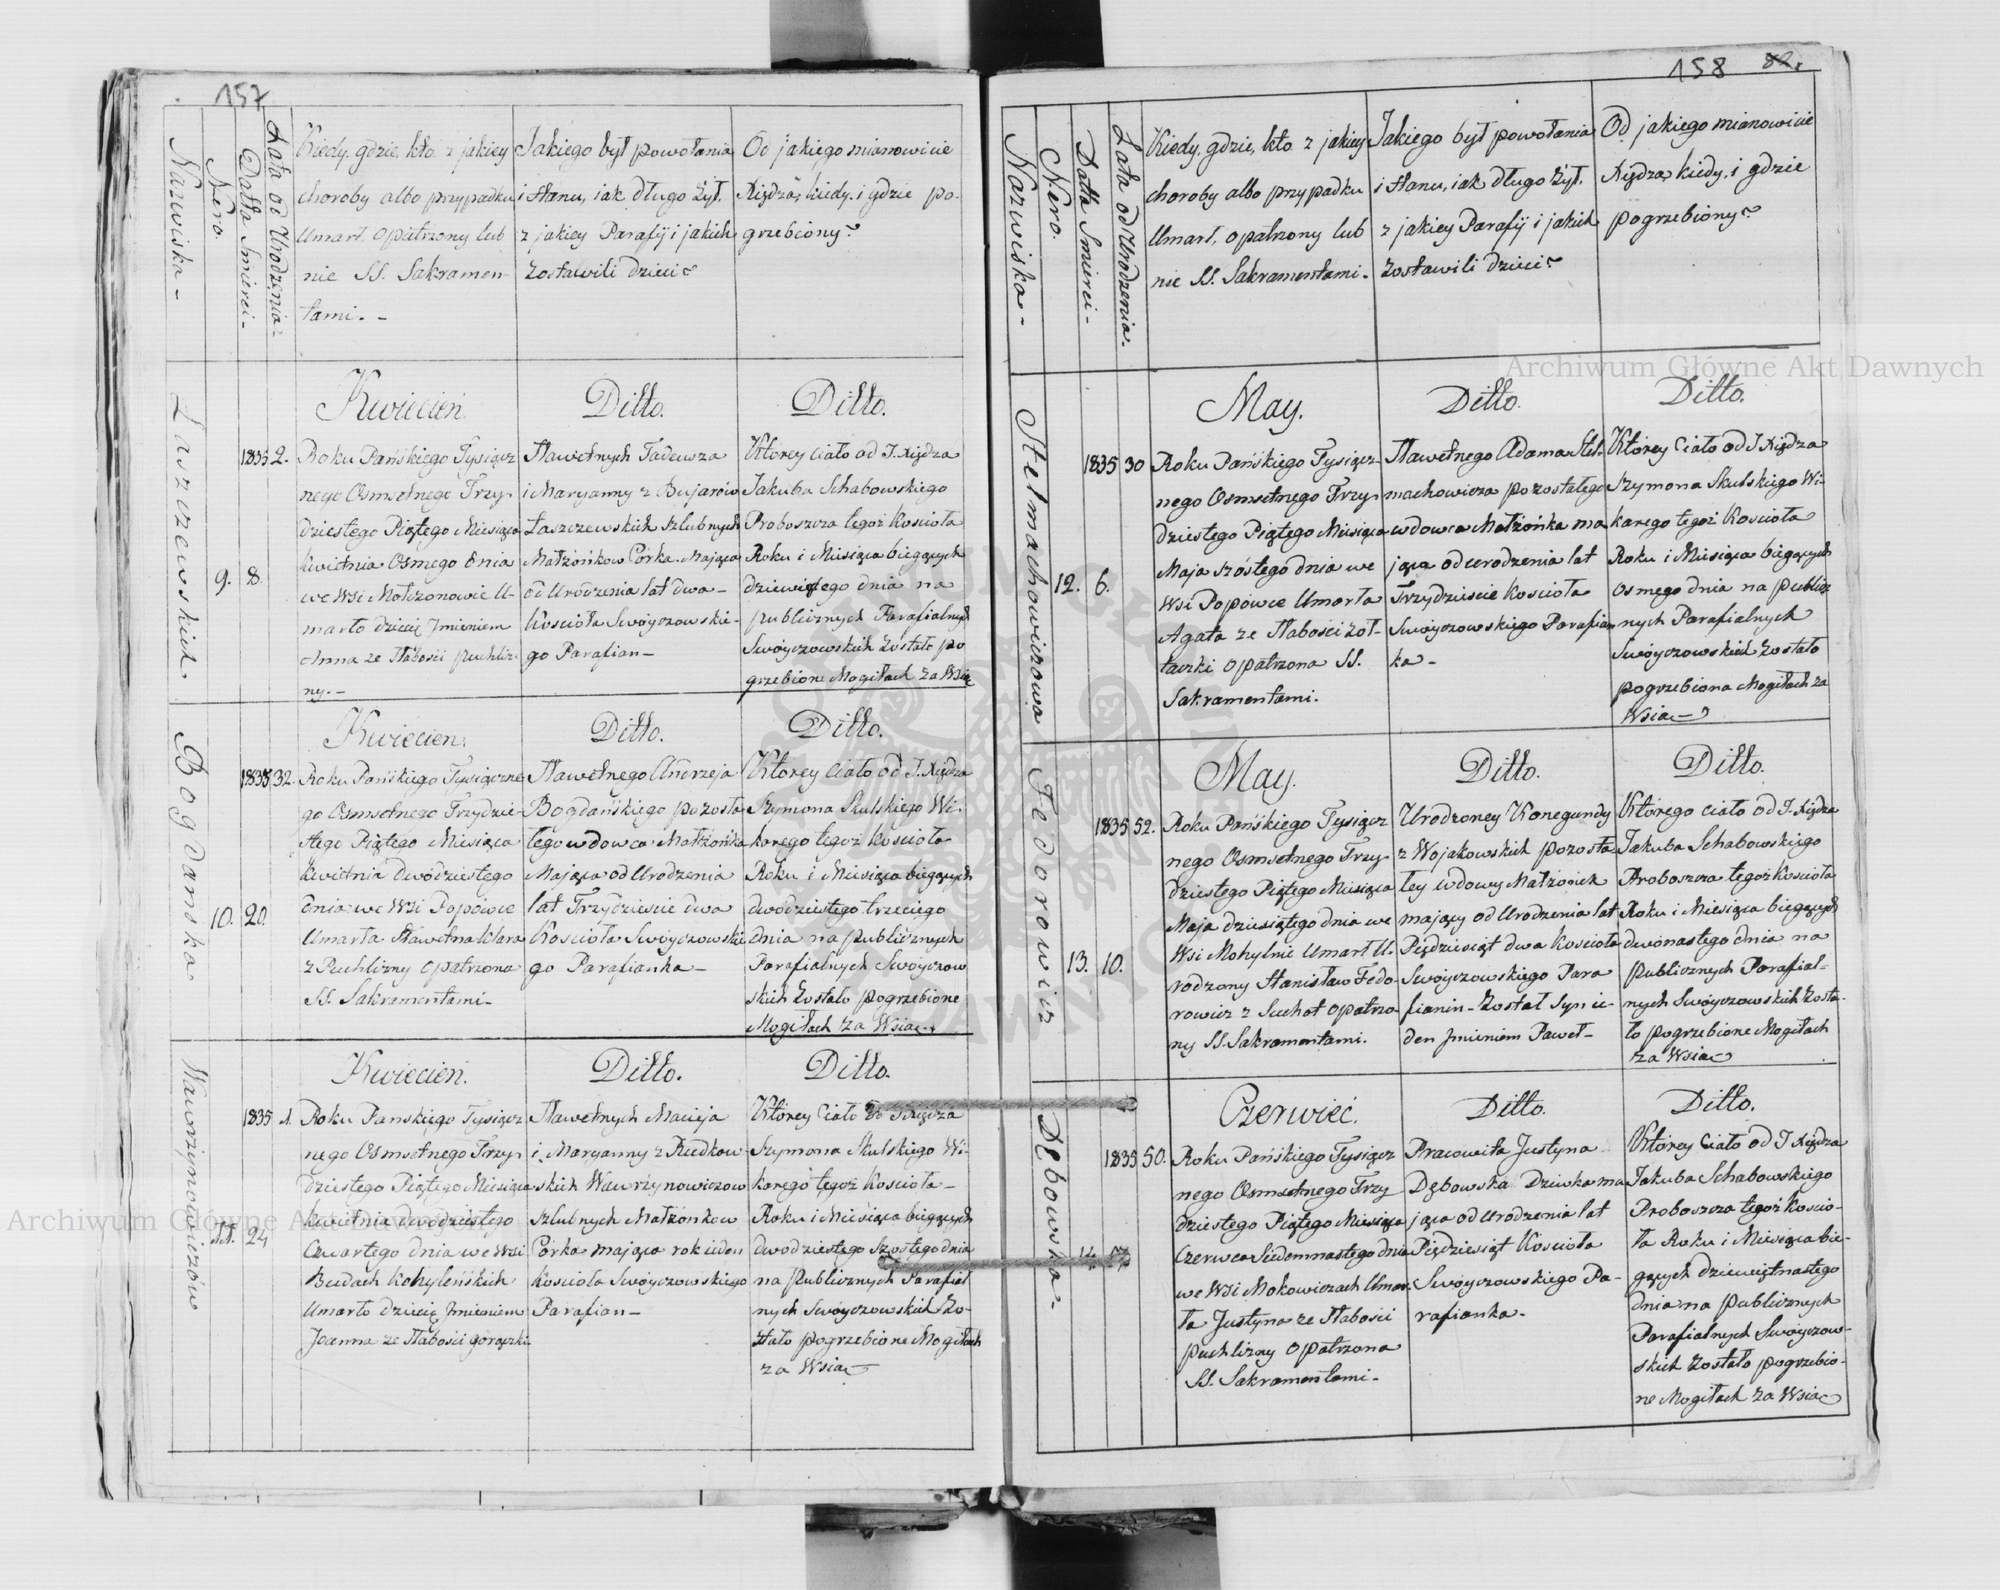 157
Nazwiska -
Nero.
Datta Smierci -
Lata od Urodzenia -
Kiedy, gdzie, kto z jakiey
choroby albo przypadku
Umarł, opatrzony lub
nie SS. Sakramen-
tami. -
Jakiego był powołania
i stanu, iak długo żył.
z jakiey Parafij i jakich
zostawili dzieci?
Od jakiego mianowicie
Xiędza, kiedy, i gdzie po-
grzebiony?
Łaszczewskich
9.
1835
8.
2.
Kwiecień.
Roku Pańskiego Tysiącz
nego Osmsetnego Trzy
dziestego Piątego Miesiąca
Kwietnia Osmego Dnia
we Wsi Mołczonowie U-
marło dziecię Jmieniem
Anna ze słabości puchli
ny. -
Ditto.
Sławetnych Tadeusza
i Maryanny z Bujarów
Łaszczewskich szlubnych
Małżonków Córka. Mająca
od Urodzenia lat dwa -
Kościoła Swoyczowskie-
go Parafian -
Ditto.
Ktorey Ciało od J. Xiędza
Jakuba Schabowskiego
Proboszcza tegoż Kościoła
Roku i Miesiąca biegących
dziewiętego dnia na
publicznych Parafialnych
Swoyczowskich zostało po
grzebione Mogiłach za Wsią
Bogdanska
10.
1835
20.
32.
Kwiecien.
Roku Pańskiego Tysiączne
go Osmsetnego Trzydzie-
stego Piątego Miesiąca
Kwietnia dwódziestego
Dnia we Wsi Popówce
Umarła Sławetna Klara
z Puchlizny opatrzona
SS. Sakramentami -
Ditto.
Sławetnego Andrzeja
Bogdańskiego pozosta
łego wdowca Małżonka
Mająca od Urodzenia
lat Trzydzieście dwa
Kościoła Swoyczowskie
go Parafianka -
Ditto.
Ktorey Ciało od J. Xiędza
Szymona Skulskiego Wi-
karego tegoż Kościoła
Roku i Miesiąca biegących
dwódziestego trzeciego
dnia na publicznych
Parafialnych Swoyczow
skich zostało pogrzebione
Mogiłach za Wsią -
Wawrzynowiczów
11.
1835
24
1.
Kwiecień.
Roku Pańskiego Tysiącz
nego Osmsetnego Trzy
dziestego Piątego Miesiąca
Kwietnia dwódziestego
Czwartego dnia we Wsi
Budach Kohyleńskich
Umarło dziecię Jmieniem
Joanna ze słabości gorączki
Ditto.
Sławetnych Macieja
i Maryanny z Rudkow-
skich Wawrzynowiczow
szlubnych Małżonkow
Córka mająca rok ieden
Kościoła Swoyczowskiego
Parafian -
Ditto.
Ktorey Ciało od J. Xiędza
Szymona Skulskiego Wi-
karego tegoż Kościoła -
Roku i Miesiąca biegących
dwódziestego Szostego dnia
na publicznych Parafial
nych Swoyczowskich zo-
stało pogrzebione Mogiłach
za Wsią
158 82.
Nazwiska -
Nero.
Datta Smierci -
Lata od Urodzenia.
Kiedy, gdzie, kto z jakiey
choroby albo przypadku
Umarł, opatrzony lub
nie SS. Sakramentami.
Jakiego był powołania
i stanu, iak długo żył.
z jakiey Parafij i jakich
zostawili dzieci?
Od jakiego mianowicie
Xiędza, kiedy, i gdzie
pogrzebiony?
Stelmachowiczowa
12.
1835
6.
30
May.
Roku Pańskiego Tysiącz-
nego Osmsetnego Trzy
dziestego Piątego Miesiąca
Maja szóstego dnia we
Wsi Popówce Umarła
Agata ze słabości żoł-
taczki opatrzona SS.
Sakramentami.
Ditto.
Sławetnego Adama Stel-
machowicza pozostałego
wdowca Małżonka ma
jąca od urodzenia lat
Trzydzieście Kościoła
Swoyczowskiego Parafian
ka -
Ditto.
Ktorey Ciało od J. Xiędza
Szymona Skulskiego Wi-
karego tegoż Kościoła
Roku i Miesiąca biegących
Osmego dnia na publicz
nych Parafialnych
Swoyczowskich zostało
pogrzebiona Mogiłach za
Wsią
Fedorowicz
13.
1835
10.
52.
May.
Roku Pańskiego Tysiącz
nego Osmsetnego Trzy
dziestego Piątego Miesiąca
Maja dziesiątego dnia we
Wsi Mohylnie Umarł U-
rodzony Stanisław Fedo-
rowicz z Suchot opatrzo
ny SS. Sakramentami.
Ditto.
Urodzoney Konegundy
z Wojakowskich pozosta
łey wdowy Małżonek
mający od Urodzenia lat
Pięździesiąt dwa Kościoła
Swoyczowskiego Para
fianin - został Syn ie-
den Jmieniem Paweł -
Ditto.
Którego ciało od J. Xiędza
Jakuba Schabowskiego
Proboszcza tegoż Kościoła
Roku i Miesiąca biegących
dwónastego dnia na
publicznych Parafial-
nych Swoyczowskich zosta-
ło pogrzebione Mogiłach
za Wsią
Dębowska -
14.
1835
50.
Czerwiec.
Roku Pańskiego Tysiącz
nego Osmsetnego Trzy
dziestego Piątego Miesiąca
Czerwca Siedemnastego dnia
we Wsi Mokowiczach Umar-
ła Justyna ze słabości
puchlizny opatrzona
SS. Sakramentami -
Ditto.
Pracowita Justyna
Dębowska Dziewka ma
jąca od Urodzenia lat
Pięździesiąt Kościoła
Swoyczowskiego Pa-
rafianka -
Ditto.
Ktorey Ciało od J. Xiędza
Jakuba Schabowskiego
Proboszcza tegoż Kościo-
ła Roku i Miesiąca bie-
gących dziewiętnastego
dnia na publicznych
Parafialnych Swoyczow-
skich zostało pogrzebio-
ne Mogiłach za Wsią
Archiwum Główne Akt Dawnych
Archiwum Główne Akt